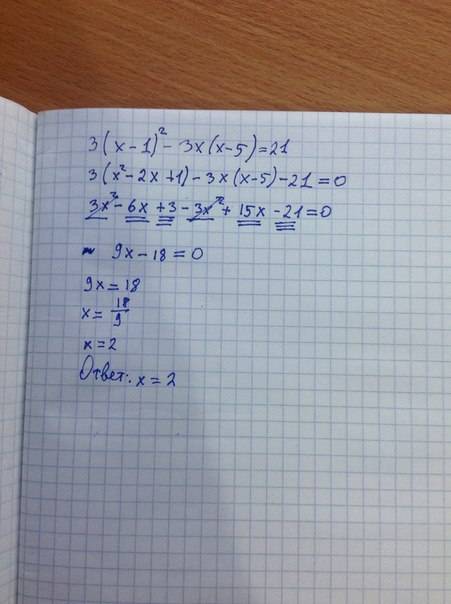 3(x-1)² - 3x(x-5)=21
3(x²-2x+1)-3x(x-5)-21=0
3x²-6x+3-3x²+15x-21=0
9x-18=0
9x=18
x=18/9
x=2
Ответ: x=2